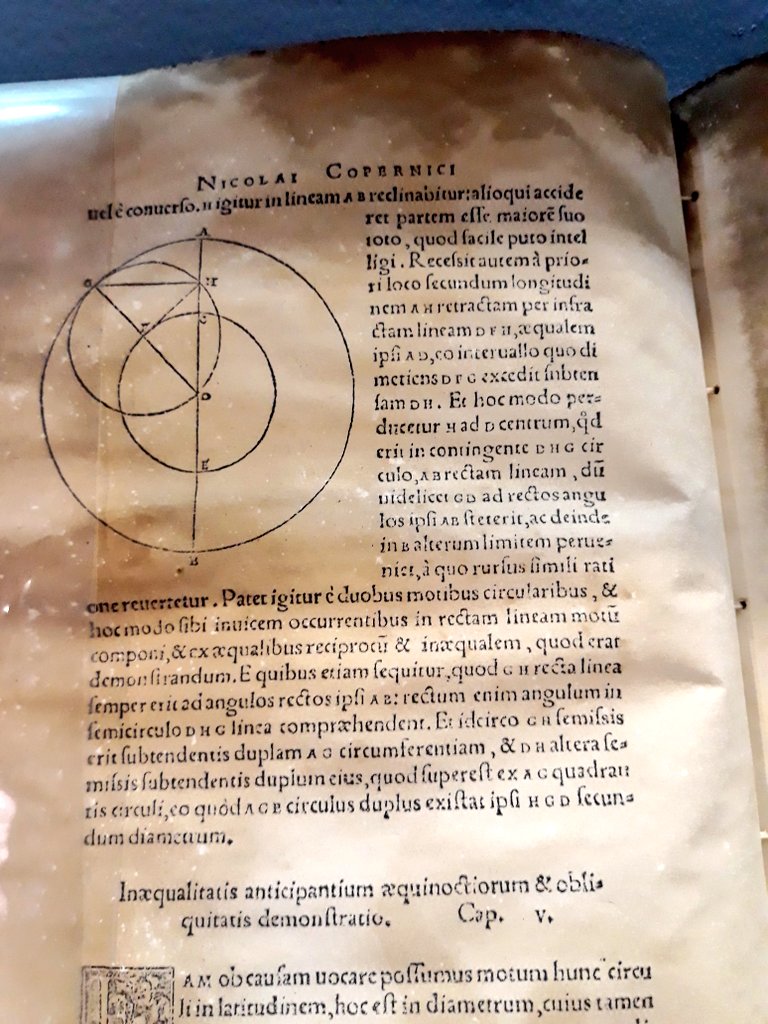 NICOLAI COPERNICI
uel è conuerso. H igitur in lineam A B reclinabitur: alioqui accide
ret partem esse maiorē suo
toto, quod facile puto intel
ligi. Recessit autem à prio-
ri loco secundum longitudi
nem A H retractam per infra
ctam lineam D F H, æqualem
ipsi A D, eo interuallo quo di
metiens D F G excedit subten
sam D H. Et hoc modo per-
ducetur H ad D centrum, qđ
erit in contingente D H G cir
culo, A B rectam lineam, dū
uidelicet G D ad rectos angu
los ipsi A B steterit, ac deinde
in B alterum limitem perue-
niet, à quo rursus simili rati
one reuertetur. Patet igitur è duobus motibus circularibus, &
hoc modo sibi inuicem occurrentibus in rectam lineam motū
componi, & ex æqualibus reciprocū & inæqualem, quod erat
demonstrandum. E quibus etiam sequitur, quod G H recta linea
semper erit ad angulos rectos ipsi A B: rectum enim angulum in
semicirculo D H G linea compræhendent. Et idcirco G H semissis
erit subtendentis duplam A G circumferentiam, & D H altera se-
missis subtendentis duplum eius, quod superest ex A G quadran
tis circuli, eo quòd A G B circulus duplus existat ipsi H G D secun-
dum diametrum.
A
G
H
F
C
D
E
B
Inæqualitatis anticipantium æquinoctiorum & obli-
quitatis demonstratio. Cap. V.
AM ob causam uocare possumus motum hunc circu
li in latitudinem, hoc est in diametrum, cuius tamen